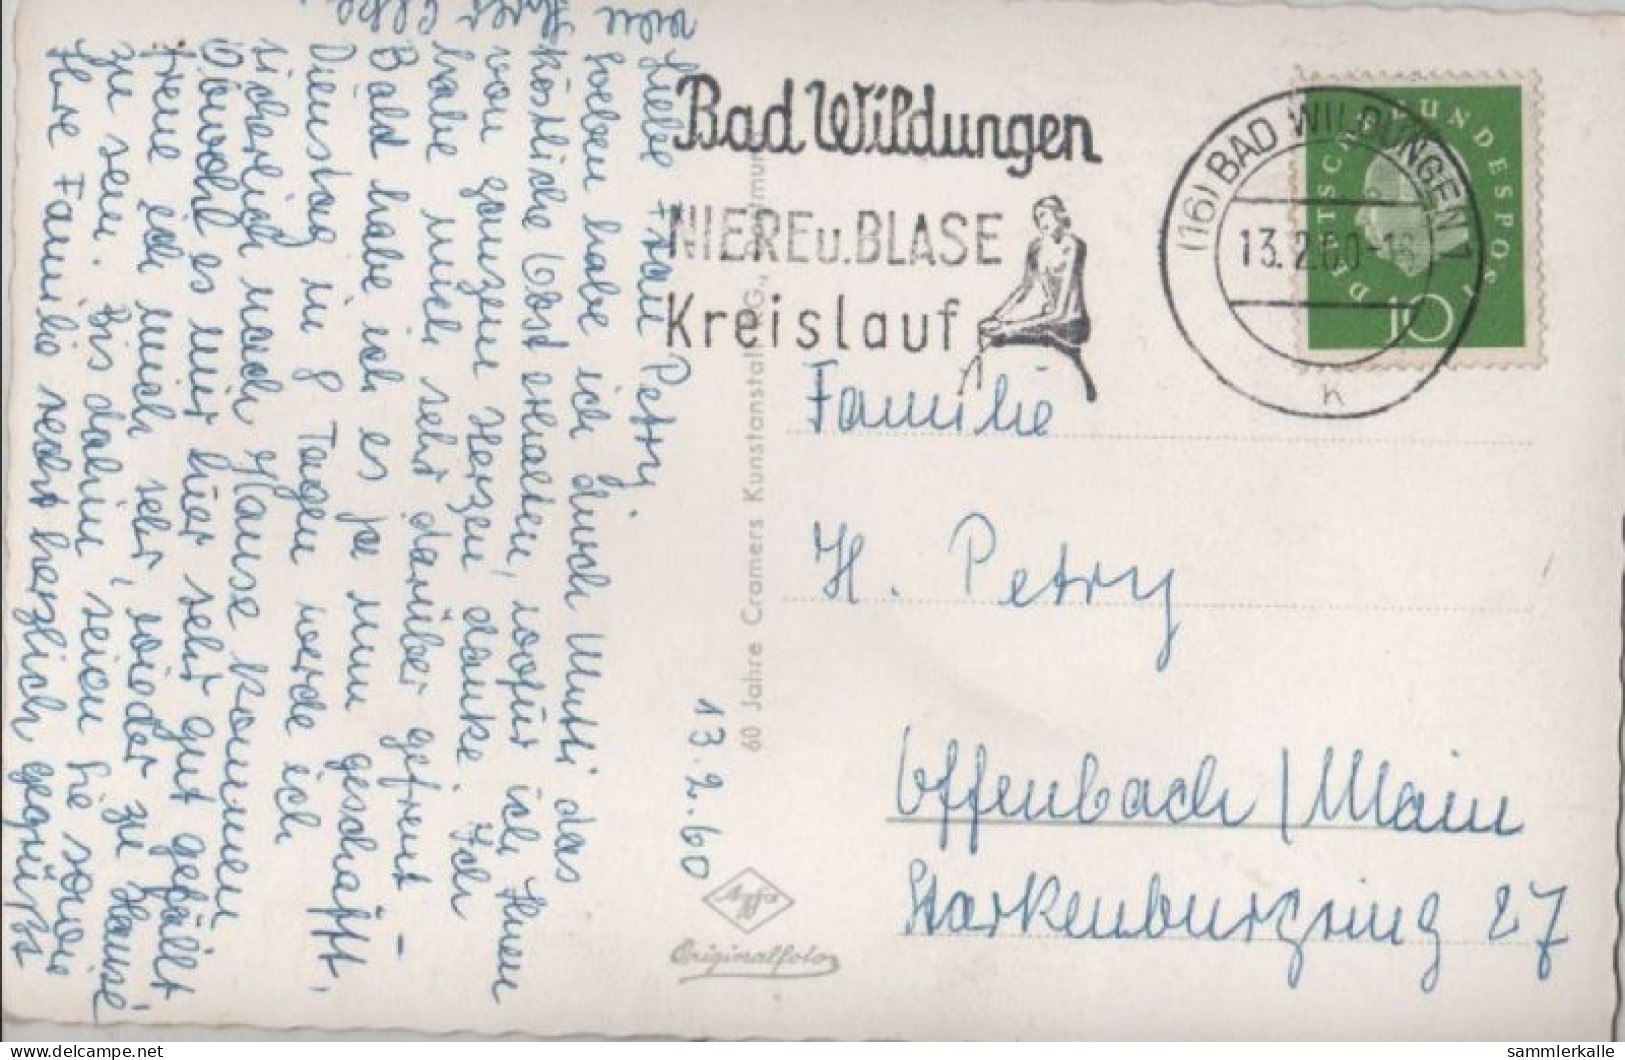 Liebe Frau Petry
Soeben habe ich durch Mutti das
köstliche Obst erhalten, wofür ich Ihnen
von ganzem Herzen danke. Ich
habe mich sehr darüber gefreut –
Bald habe ich es ja nun geschafft.
Dienstag in 8 Tagen werde ich
sicherlich nach Hause kommen
Obwohl es mir hier sehr gut gefällt
freue ich mich sehr, wieder zu Hause
zu sein. Bis dahin seien Sie sowie
Ihre Familie recht herzlich gegrüßt
von Ihrer
13.2.60
60 Jahre Cramers Kunstanstalt KG., Dortmund
Agfa
Originalfoto
Bad Wildungen
NIERE u. BLASE
Kreislauf
(16) BAD WILDUNGEN 1
13.2.60-16
k
DEUTSCHE BUNDESPOST
10
Familie
H. Petry
Offenbach / Main
Starkenburgring 27
sammlerkalle
delcampe.net